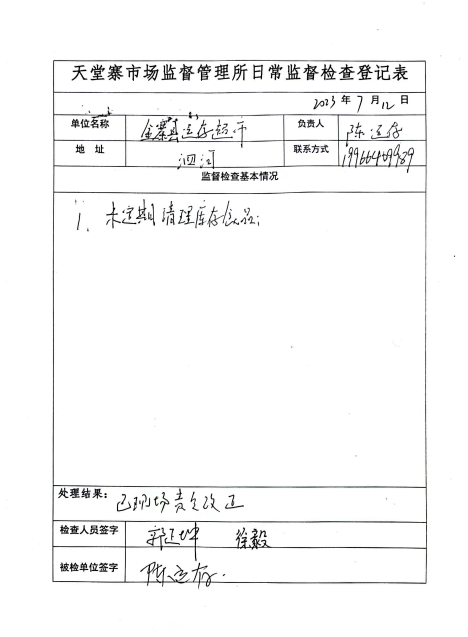 天堂寨市场监督管理所日常监督检查登记表
2023 年 7 月 12 日
单位名称 金寨县运存超市 负责人 陈运存
地 址 泗河 联系方式
监督检查基本情况
1、未定期清理库存食品；
处理结果： 已现场责令改正
检查人员签字 徐毅
被检单位签字 陈运存.